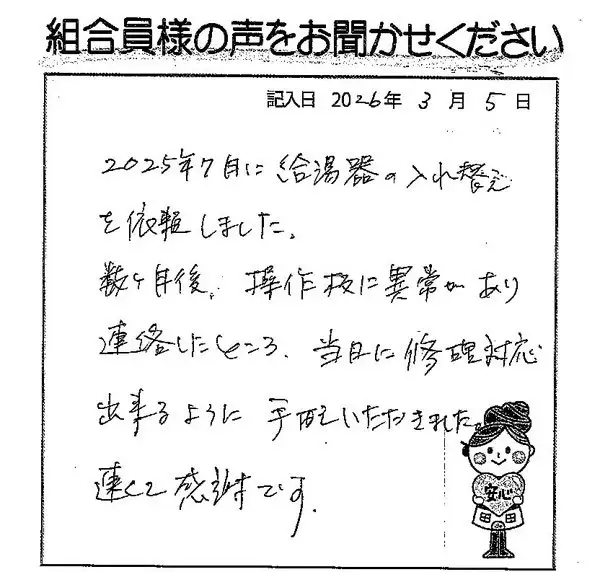 組合員様の声をお聞かせください
記入日 2026年 3月 5日
2025年7月に給湯器の入れ替え
を依頼しました。
数ヶ月後、操作板に異常があり
連絡したところ、当日に修理対応
出来るように手配いただきました。
速くて感謝です。
安心